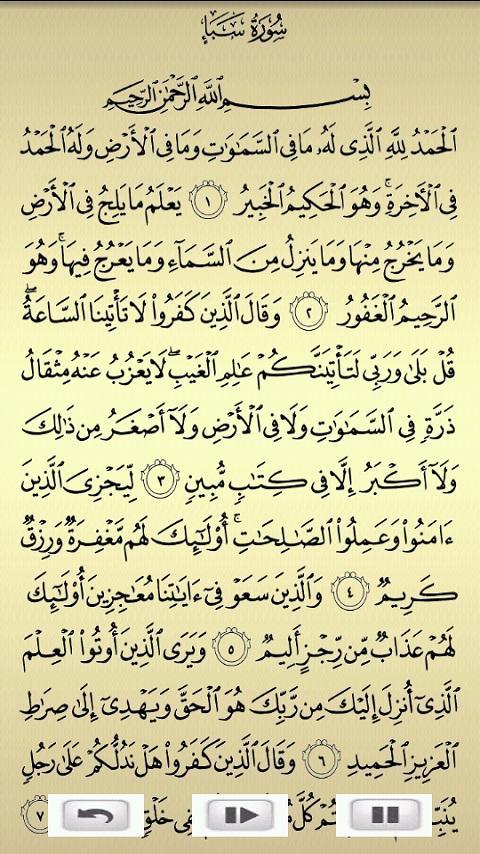 سُورَةُ سَبَإٍ
بِسْمِ ٱللَّهِ ٱلرَّحْمَٰنِ ٱلرَّحِيمِ
ٱلْحَمْدُ لِلَّهِ ٱلَّذِى لَهُۥ مَا فِى ٱلسَّمَٰوَٰتِ وَمَا فِى ٱلْأَرْضِ وَلَهُ ٱلْحَمْدُ
فِى ٱلْأَخِرَةِ ۚ وَهُوَ ٱلْحَكِيمُ ٱلْخَبِيرُ ١ يَعْلَمُ مَا يَلِجُ فِى ٱلْأَرْضِ
وَمَا يَخْرُجُ مِنْهَا وَمَا يَنزِلُ مِنَ ٱلسَّمَآءِ وَمَا يَعْرُجُ فِيهَا ۚ وَهُوَ
ٱلرَّحِيمُ ٱلْغَفُورُ ٢ وَقَالَ ٱلَّذِينَ كَفَرُوا۟ لَا تَأْتِينَا ٱلسَّاعَةُ ۖ
قُلْ بَلَىٰ وَرَبِّى لَتَأْتِيَنَّكُمْ عَٰلِمِ ٱلْغَيْبِ ۖ لَا يَعْزُبُ عَنْهُ مِثْقَالُ
ذَرَّةٍ فِى ٱلسَّمَٰوَٰتِ وَلَا فِى ٱلْأَرْضِ وَلَآ أَصْغَرُ مِن ذَٰلِكَ
وَلَآ أَكْبَرُ إِلَّا فِى كِتَٰبٍ مُّبِينٍ ٣ لِّيَجْزِىَ ٱلَّذِينَ
ءَامَنُوا۟ وَعَمِلُوا۟ ٱلصَّٰلِحَٰتِ ۚ أُو۟لَٰٓئِكَ لَهُم مَّغْفِرَةٌ وَرِزْقٌ
كَرِيمٌ ٤ وَٱلَّذِينَ سَعَوْ فِىٓ ءَايَٰتِنَا مُعَٰجِزِينَ أُو۟لَٰٓئِكَ
لَهُمْ عَذَابٌ مِّن رِّجْزٍ أَلِيمٌ ٥ وَيَرَى ٱلَّذِينَ أُوتُوا۟ ٱلْعِلْمَ
ٱلَّذِىٓ أُنزِلَ إِلَيْكَ مِن رَّبِّكَ هُوَ ٱلْحَقَّ وَيَهْدِىٓ إِلَىٰ صِرَٰطِ
ٱلْعَزِيزِ ٱلْحَمِيدِ ٦ وَقَالَ ٱلَّذِينَ كَفَرُوا۟ هَلْ نَدُلُّكُمْ عَلَىٰ رَجُلٍ
كُلَّ ٧